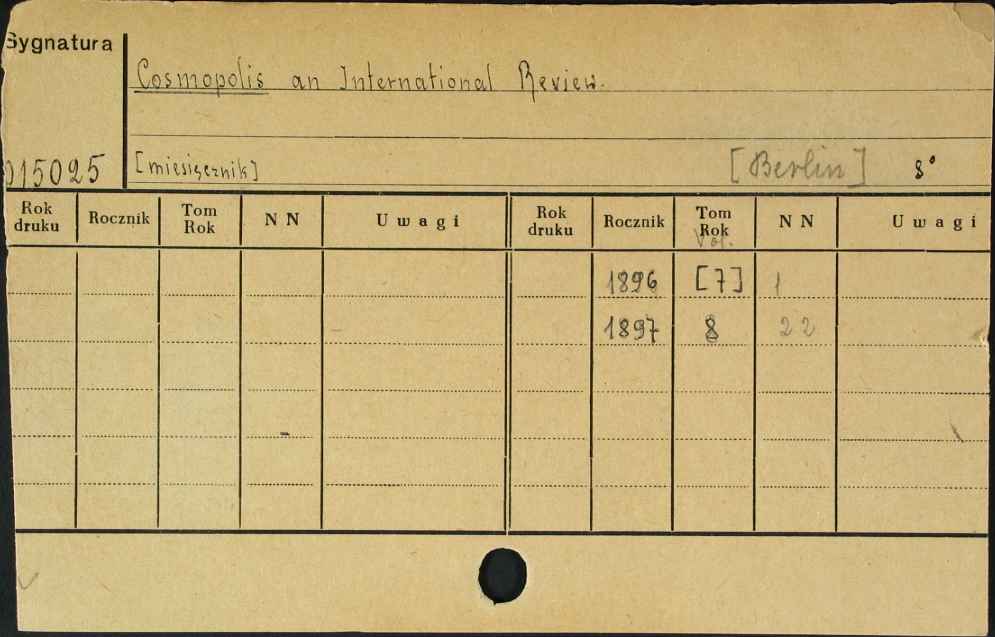 Sygnatura
Cosmopolis an International Review.
015025 [miesięcznik] [Berlin] 8°
Rok druku Rocznik Tom Rok N N Uwagi Rok druku Rocznik Tom Rok N N Uwagi
Vol.
1896 [7] 1
1897 8 22